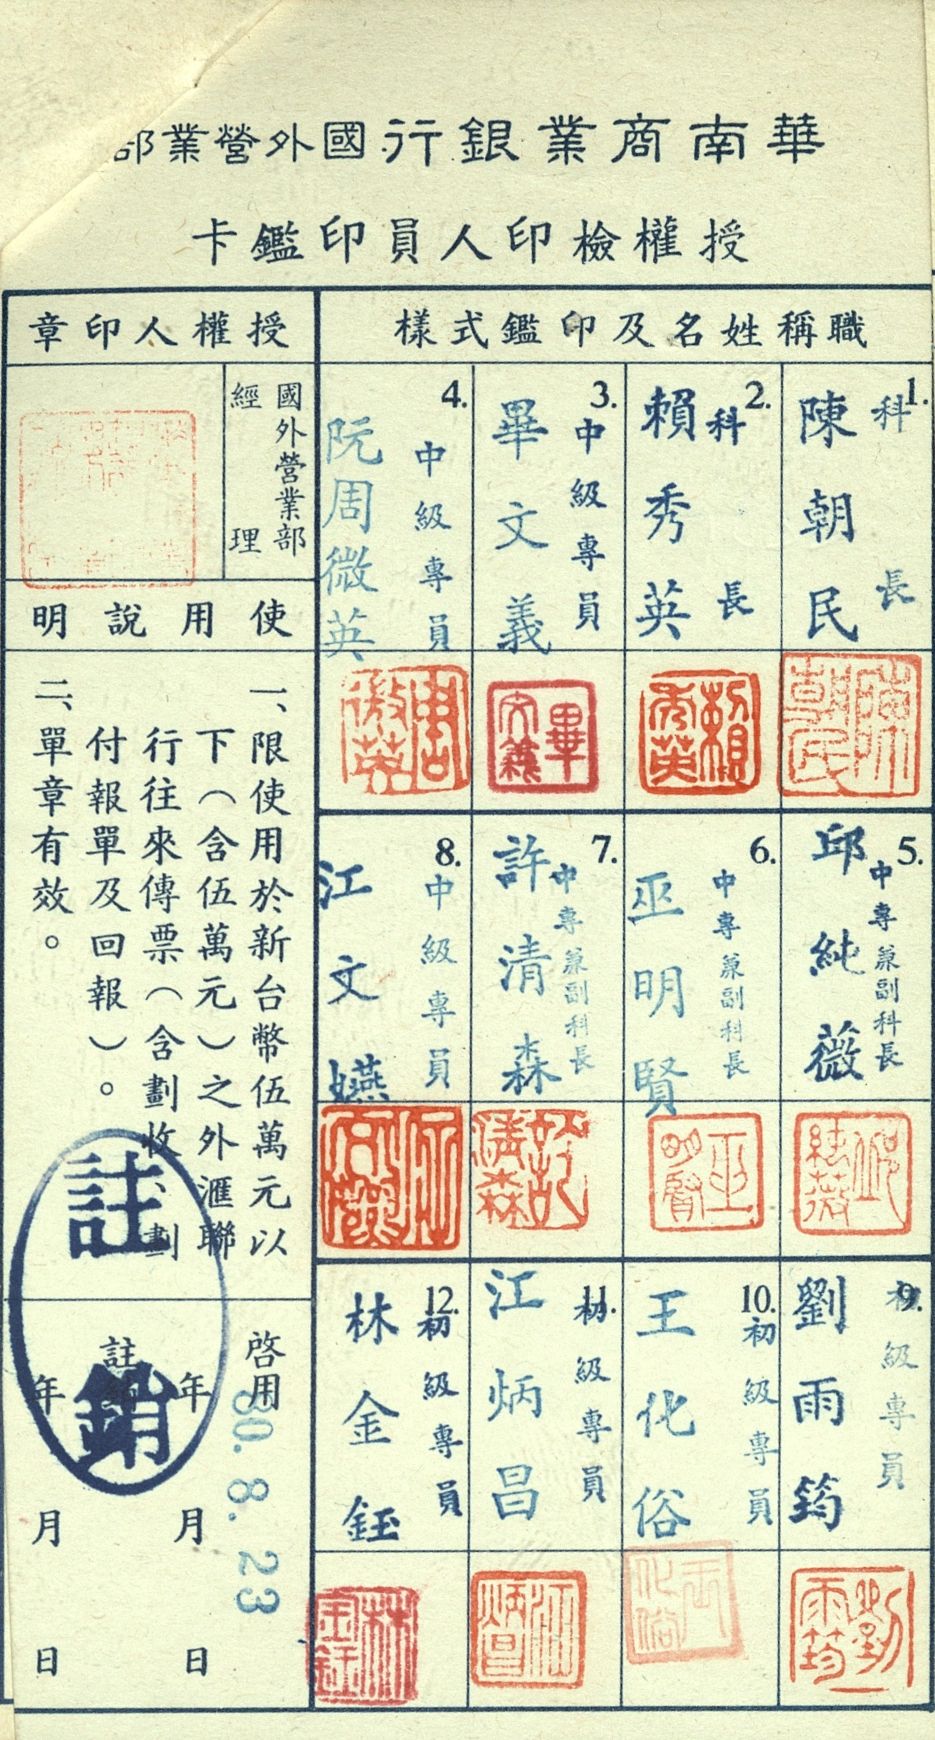 華南商業銀行國外營業部
授權檢印人員印鑑卡
職稱姓名及印鑑樣式
1.
科長
陳朝民
陳朝民
2.
科長
賴秀英
賴秀英
3.
中級專員
畢文義
畢文義
4.
中級專員
阮周微英
周微英
5.
中專兼副科長
邱純薇
邱純薇
6.
中專兼副科長
巫明賢
巫明賢
7.
中專兼副科長
許清森
許清森
8.
中級專員
江文嬿
9.
初級專員
劉雨筠
劉雨筠
10.
初級專員
王化俗
王化俗
11.
初級專員
江炳昌
江炳昌
12.
初級專員
林金鈺
林金鈺
授權人印章
國外營業部
經理
使用說明
一、限使用於新台幣伍萬元以
下（含伍萬元）之外滙聯
行往來傳票（含劃收、劃
付報單及回報）。
二、單章有效。
啓用 年 月 日
80.8.23
註銷 年 月 日
註銷